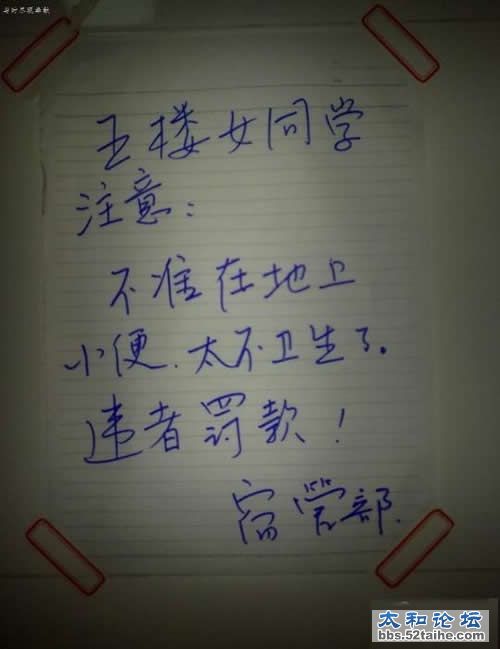 五楼女同学
注意:
不准在地上
小便.太不卫生了。
违者罚款!
宿管部.
太和论坛
bbs.52taihe.com